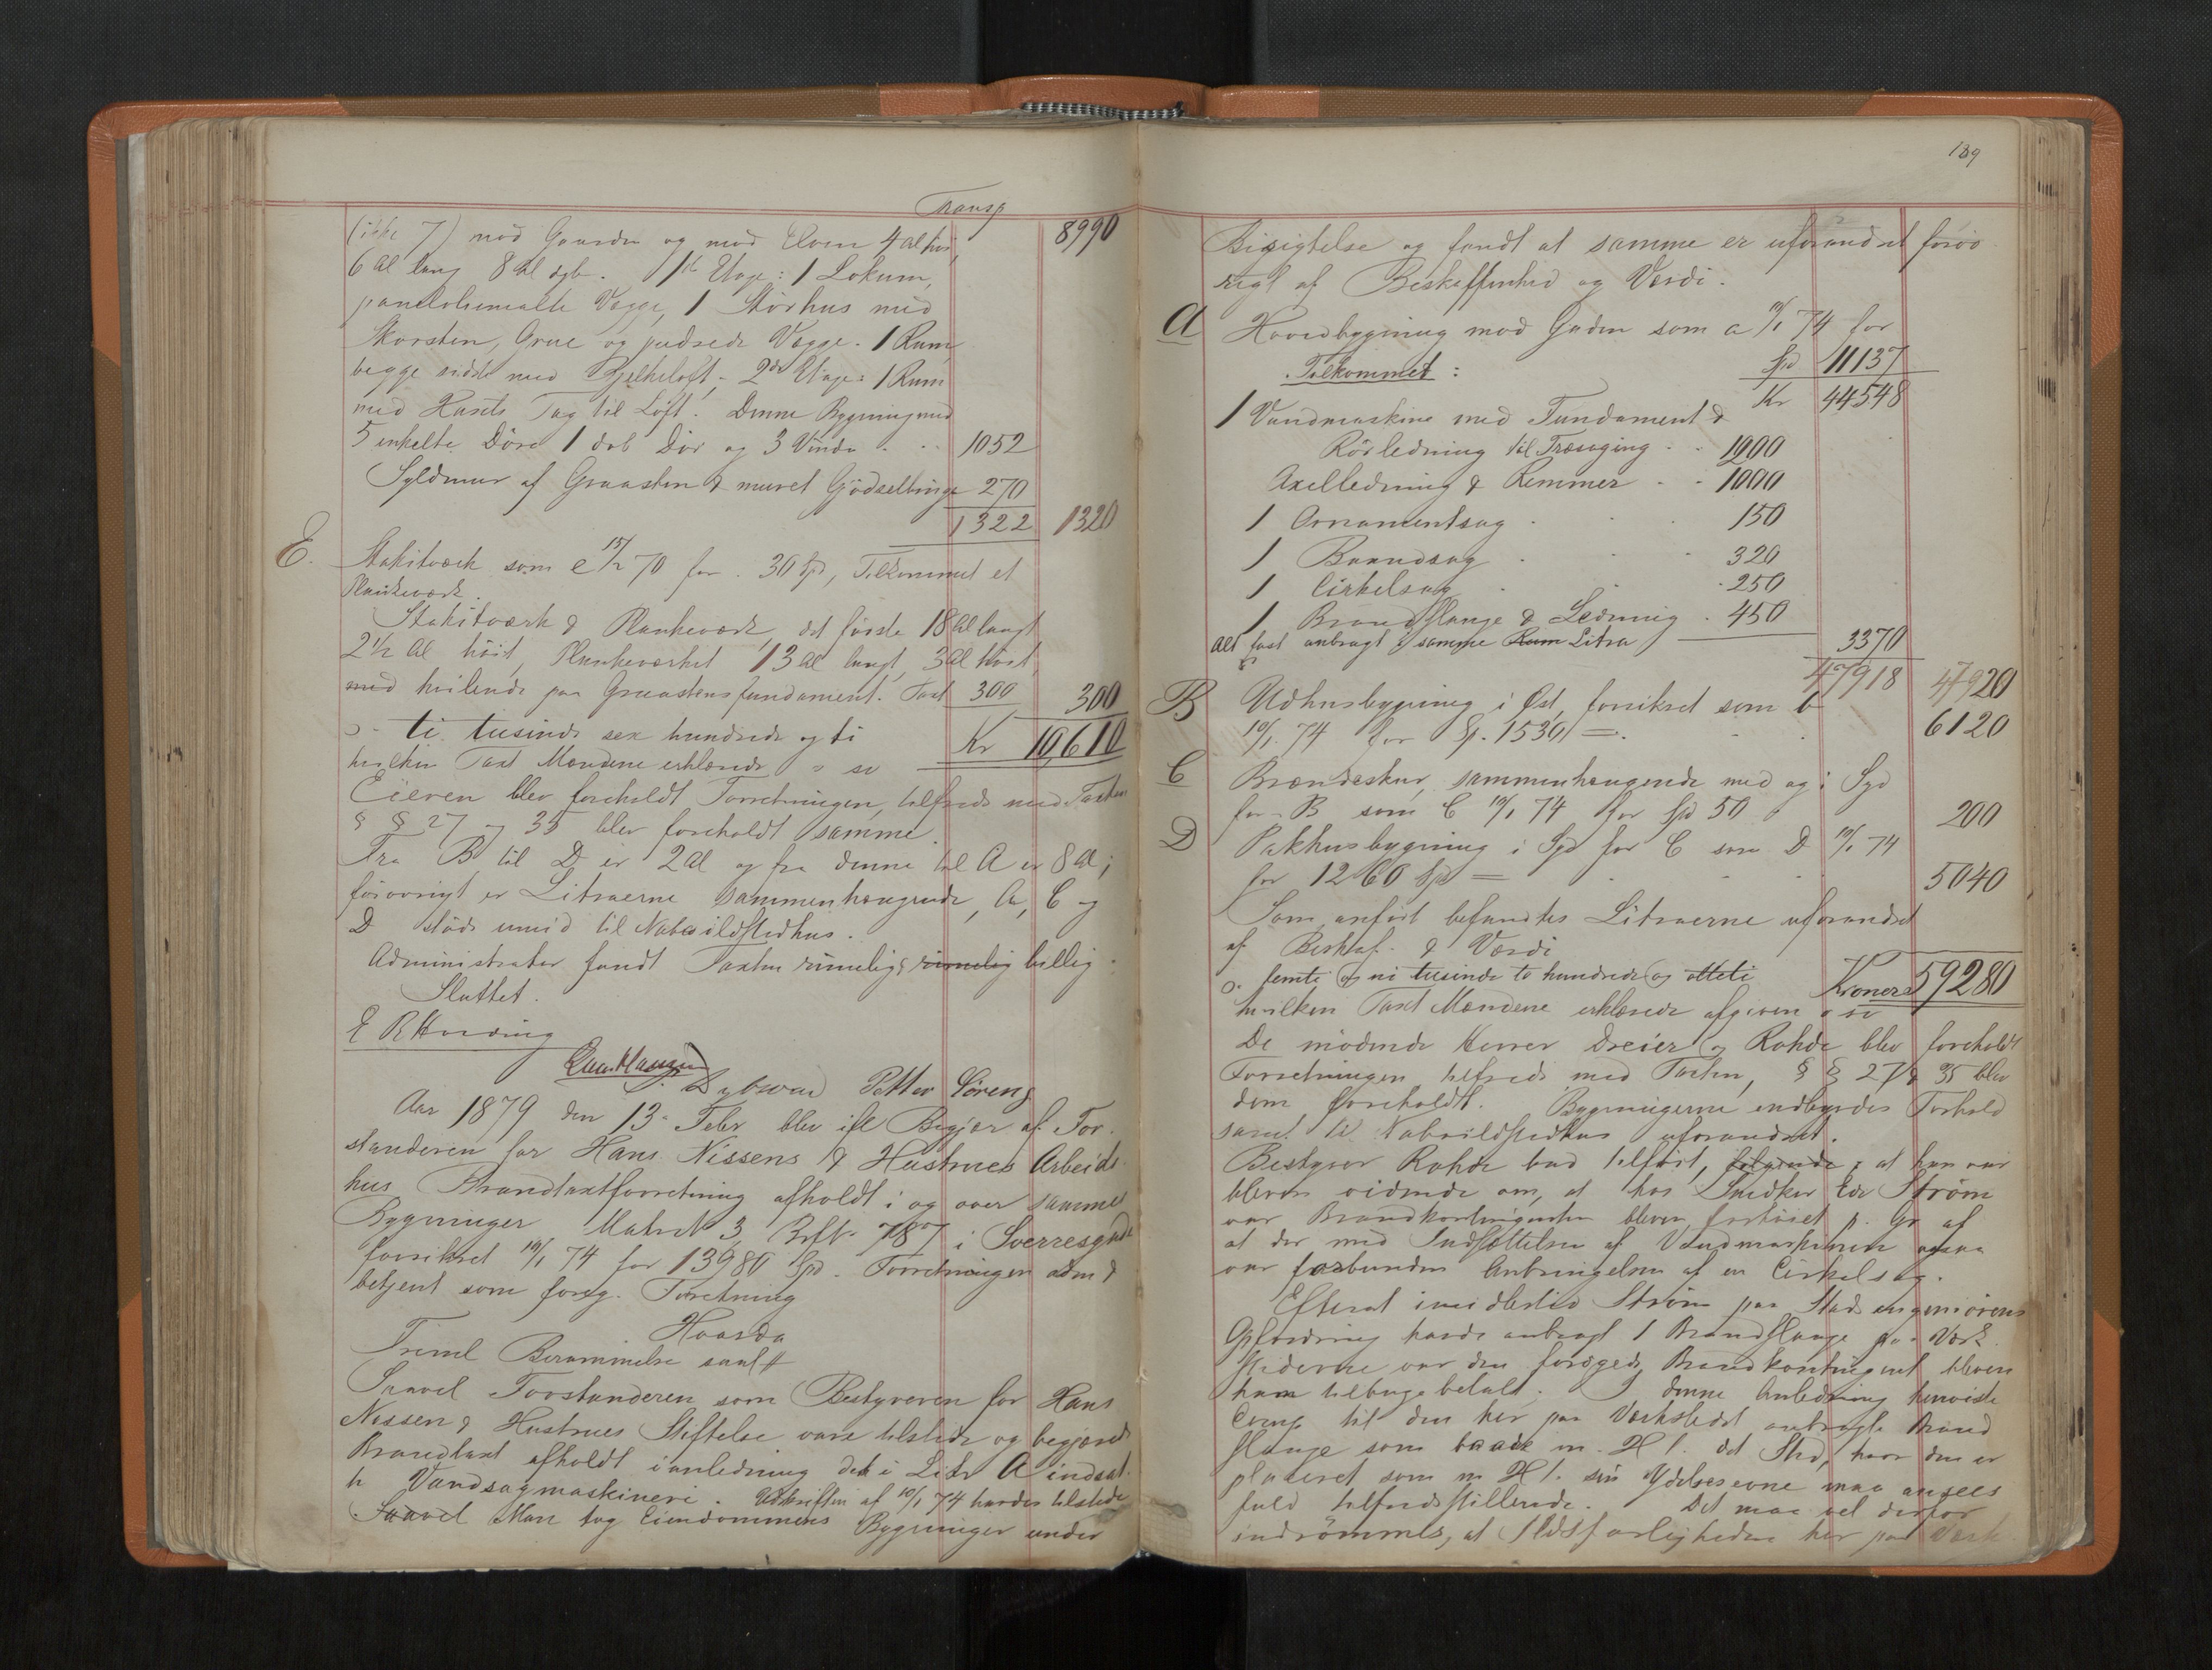 Transp
(ikke 7) mod Gaarden og mod Elven 4 al høi, 8990
6 Al lang 8 Al dyb. 1ste Etage: 1 Lokum,
paneloliemalte Vægge, 1 Størhus med
Skorsten, Grue og pudsede Vægge. 1 Rum,
begge sidste med Bjelkeloft. 2den Etage: 1 Rum
med Husets Tag til Loft. Denne Bygning med
5 enkelte Døre 1 dob Dør og 3 Vindu 1052
Syldmur af Graasten & muret Gjødselbinge 270
1322 1320
E. Stakitværk som e 15/2 70 for 30 Spd, Tilkommet et
Plankeværk.
Stakitværk & Plankeværk, det første 18 Al langt
2½ Al høit, Plankeværket 13 Al langt, 3 Al høit,
med hvilende paa Graastensfundament. Taxt 300 300
ti tusinde sex hundrede og ti Kr 10,610
hvilken Taxt Mændene erklærede
Eieren blev foreholdt Forretningen, tilfreds med Taxten
§ § 27 og 35 blev foreholdt samme.
Fra B til D er 2 Al og fra denne til A er 8 Al;
forøvrigt er Litraerne sammenhængende, A, C og
D støde umid til Naboildstedhus.
Administrator fandt Taxten rimelig & rimelig billig.
Sluttet.
E R Hording
Petter Sørens
Aar 1879 den 13de Febr blev ifl Begjær af For-
standeren for Hans Nissens & Hustrues Arbeids-
hus Brandtaxtforretning afholdt i og over sammes
Bygninger Matr No 3, 787 i Sverresgade
forsikret 10/1 74 for 13980 Spd. Forretningen adm &
betjent som foreg. Forretning
Hvorda
Freml Berammelse saal #
Saavel Forstanderen som Bestyreren for Hans
Nissen & Hustrues Stiftelse vare tilstede og begjærede
Brandtaxt afholdt i anledning det i Litr A indsat-
te Vandsagmaskineri. Udskriften af 10/1 74 havdes tilstede
Saavel Man tog Eiendommens Bygninger under
189
Besigtelse og fandt at samme er uforandret forøv-
rigt af Beskaffenhed og Værdi.
A Hovedbygning mod Gaden som a 10/1 74 for
Spd 11137
Tilkommet: Kr 44548
1 Vandmaskine med Fundament &
Rørledning til Træsaging 1200
Axelledning & Remmer 1000
1 Ornamentsag 150
1 Baandsag 320
1 Cirkelsag 250
1 Brandslange & Ledning 450
alt fast anbragt i samme Rum Litra 3370
47918 47920
B Udhusbygning i Øst, forsikret som b
10/1 74 for Sp. 1530 6120
C Brændeskur, sammenhængende med og i Syd
for B som C 10/1 74 for Spd 50 200
D Pakhusbygning i Syd for C som D 10/1 74
for 1260 Spd 5040
Som anført befandtes Litraerne uforandret
af Beskaf. & Værdi
femti og ni tusinde to hundrede og otteti Kroner 59280
hvilken Taxt Mændene erklærede afgiven
De mødende Herrer Dreier og Rohde blev foreholdt
Forretningen tilfreds med Taxten, § § 27 & 35 blev
dem foreholdt. Bygningerne indbyrdes Forhold
samt til Naboildstedhus uforandret.
Bestyrer Rohde bad tilført, følgende; at han var
bleven vidende om, at hos Snedker Edv Strøm
var Brandkontingenten bleven forhøiet p. Gr. af
at der med Indsættelsen af Vandmaskinen ogsaa
var forbunden Anbringelsen af en Cirkelsag.
Efterat imidlertid Strøm paa Stadsengeniørens
Opfordring havde anbragt 1 Brandslange paa Værk-
stederne var den forøgede Brandkontingent bleven
ham tilbagebetalt. I denne Anledning henviste
Comp til den her paa Værkstedet anbragte Brand
slange som baade m. H t. det Sted, hvor den er
placeret som m H t. sin Ydelsesevne maa ansees
fuld tilfredsstillende. Det maa vel derfor
indrømmes, at Ildsfarligheden her paa Værk